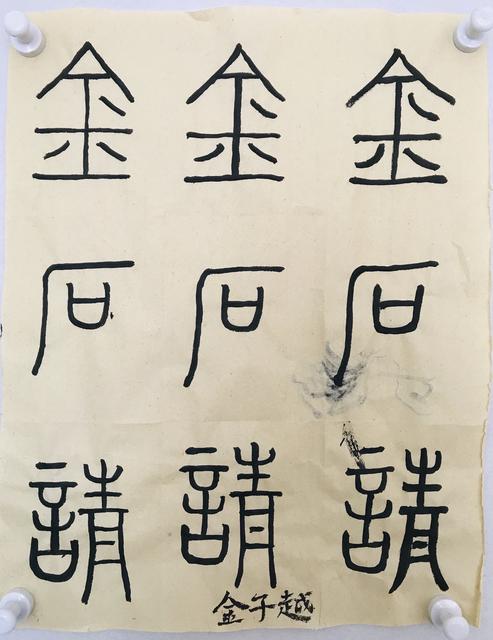 金石請
金石請
金石請
金子越